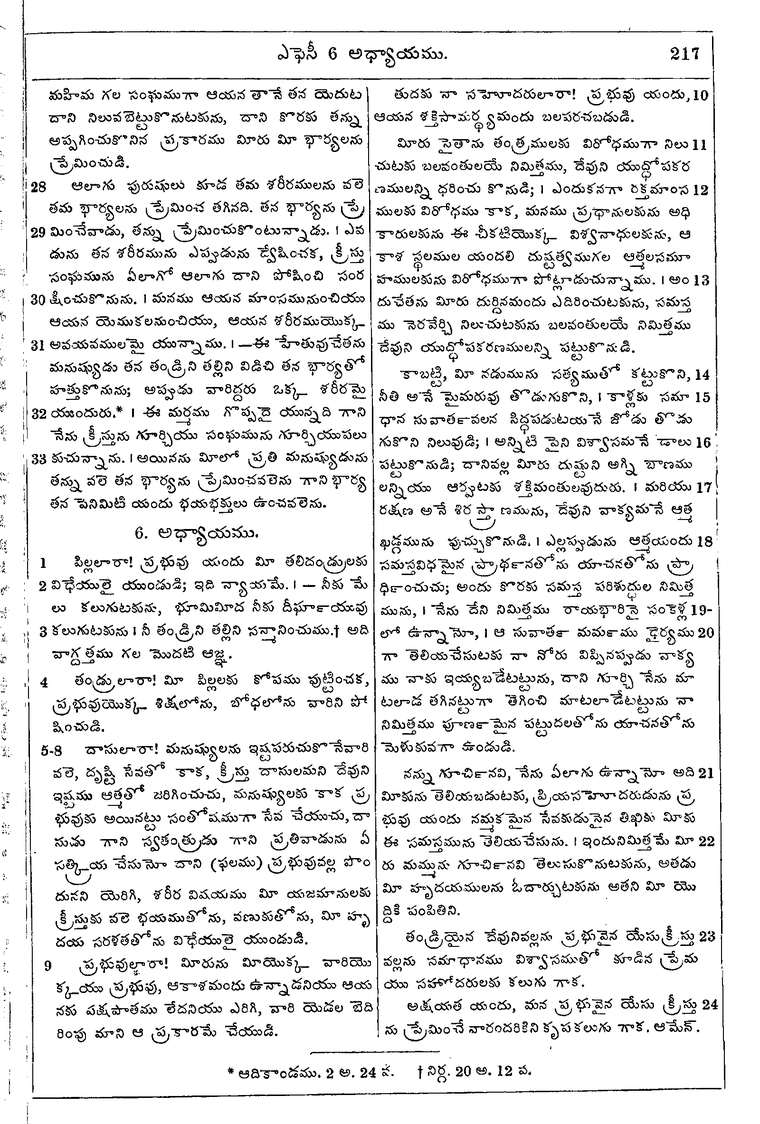 ఎఫెసీ 6 అధ్యాయము. 217
మహిమ గల సంఘముగా ఆయన తానే తన యెదుట
దాని నిలువబెట్టుకొనుటకును, దాని కొరకు తన్ను
అప్పగించుకొనిన ప్రకారము మీరు మీ భార్యలను
ప్రేమించుడి.
28 ఆలాగు పురుషులు కూడ తమ శరీరములను వలె
తమ భార్యలను ప్రేమించ తగినది. తన భార్యను ప్రే
29 మించేవాడు, తన్ను ప్రేమించుకొంటున్నాడు. । ఎవ
డును తన శరీరమును ఎప్పడును ద్వేషించక, క్రీస్తు
సంఘమును ఏలాగో ఆలాగు దాని పోషించి సంర
30 క్షించుకొనును. । మనము ఆయన మాంసమునుంచియు
ఆయన యెముకలనుంచియు, ఆయన శరీరముయొక్క
31 అవయవములమై యున్నాము. । —ఈ హేతువుచేతను
మనుష్యుడు తన తండ్రిని తల్లిని విడిచి తన భార్యతో
హత్తుకొనును; అప్పడు వారిద్దరు ఒక్క శరీరమై
32 యుందురు.* । ఈ మర్మము గొప్పదై యున్నది గాని
నేను క్రీస్తును గూర్చియు సంఘమును గూర్చియుపలు
33 కుచున్నాను. । అయినను మీలో ప్రతి మనుష్యుడును
తన్ను వలె తన భార్యను ప్రేమించవలెను గాని భార్య
తన పెనిమిటి యందు భయభక్తులు ఉంచవలెను.
6. అధ్యాయము.
1 పిల్లలారా! ప్రభువు యందు మీ తలిదండ్రులకు
2 విధేయులై యుండుడి; ఇది న్యాయమే. । — నీకు మే
లు కలుగుటకును, భూమిమీద నీకు దీర్ఘాయువు
3 కలుగుటకును। నీ తండ్రిని తల్లిని సన్మానించుము.† అది
వాగ్దత్తము గల మొదటి ఆజ్ఞ.
4 తండ్రులారా! మీ పిల్లలకు కోపము పుట్టించక,
ప్రభువుయొక్క శిక్షలోను, బోధలోను వారిని పో
షించుడి.
5-8 దాసులారా! మనుష్యులను ఇష్టపరుచుకొనేవారి
వలె, దృష్టి సేవతో కాక, క్రీస్తు దాసులమని దేవుని
ఇష్టము ఆత్మతో జరిగించుచు, మనుష్యులకు కాక ప్ర
భువుకు అయినట్టు సంతోషముగా సేవ చేయుచు, దా
సుడు గాని స్వతంత్రుడు గాని ప్రతివాడును ఏ
సత్క్రియ చేసునో దాని (ఫలము) ప్రభువువల్ల పొం
దునని యెరిగి, శరీర విషయము మీ యజమానులకు
క్రీస్తుకు వలె భయముతోను, వణుకుతోను, మీ హృ
దయ సరళతతోను విధేయులై యుండుడి.
9 ప్రభువుల్లారా! మీరును మీయొక్క వారియొ
క్కయు ప్రభువు, ఆకాశమందు ఉన్నాడనియు ఆయ
నకు పక్షపాతము లేదనియు ఎరిగి, వారి యెడల బెది
రింపు మాని ఆ ప్రకారమే చేయుడి.
తుదకు నా సహోదరులారా! ప్రభువు యందు, 10
ఆయన శక్తిసామర్థ్యమందు బలపరచబడుడి.
మీరు సైతాను తంత్రములకు విరోధముగా నిలు 11
చుటకు బలవంతులయే నిమిత్తము, దేవుని యుద్ధోపకర
ణములన్ని ధరించు కొనుడి; । ఎందుకనగా రక్తమాంస 12
ములకు విరోధము కాక, మనము ప్రధానులకును అధి
కారులకును ఈ చీకటియొక్క విశ్వనాధులకును, ఆ
కాశ స్థలముల యందలి దుష్టత్వముగల ఆత్మలసమూ
హములకును విరోధముగా పోట్లాడుచున్నాము. । అం 13
దుచేతను మీరు దుర్దినమందు ఎదిరించుటకును, సమస్త
ము నెరవేర్చి నిలుచుటకును బలవంతులయే నిమిత్తము
దేవుని యుద్ధోపకరణములన్ని పట్టుకొనుడి.
కాబట్టి, మీ నడుమును సత్యముతో కట్టుకొని, 14
నీతి అనే మైమరువు తొడుగుకొని, । కాళ్లకు సమా 15
ధాన సువార్తవలన సిద్ధపడుటయనే జోడు తొడు
గుకొని నిలువుడి; । అన్నిటి పైని విశ్వాసమనే డాలు 16
పట్టుకొనుడి; దానివల్ల మీరు దుష్టుని అగ్ని బాణము
లన్నియు ఆర్పుటకు శక్తిమంతులవుదురు. । మరియు 17
రక్షణ అనే శిరస్త్రాణమును, దేవుని వాక్యమనే ఆత్మ
ఖడ్గమును పుచ్చుకొనుడి. । ఎల్లప్పడును ఆత్మయందు 18
సమస్తవిధమైన ప్రార్థనతోను యాచనతోను ప్రా
ర్థించుచు; అందు కొరకు సమస్త పరిశుద్ధుల నిమిత్త
మును, । నేను దేని నిమిత్తము రాయభారినై సంకెళ్ల 19-
లో ఉన్నానో, । ఆ సువార్త మర్మము ధైర్యము 20
గా తెలియచేసుటకు నా నోరు విప్పినప్పుడు వాక్య
ము నాకు ఇయ్యబడేటట్టును, దాని గూర్చి నేను మా
టలాడ తగినట్టుగా తెగించి మాటలాడేటట్టును నా
నిమిత్తము పూర్ణమైన పట్టుదలతోను యాచనతోను
మెళుకువగా ఉండుడి.
నన్ను గూర్చినవి, నేను ఏలాగు ఉన్నానో అది 21
మీకును తెలియబడుటకు, ప్రియసహోదరుడును ప్ర
భువు యందు నమ్మకమైన సేవకుడునైన తిఖికు మీకు
ఈ సమస్తమును తెలియచేసును. । ఇందునిమిత్తమే మీ 22
రు మమ్మును గూర్చినవి తెలుసుకొనుటకును, అతడు
మీ హృదయములను ఓదార్చుటకును అతని మీ యొ
ద్దికి పంపితిని.
తండ్రియైన దేవునివల్లను ప్రభువైన యేసు క్రీస్తు 23
వల్లను సమాధానము విశ్వాసముతో కూడిన ప్రేమ
యు సహోదరులకు కలుగు గాక.
అక్షయత యందు, మన ప్రభువైన యేసు క్రీస్తు 24
ను ప్రేమించే వారందరికిని కృపకలుగు గాక. ఆమేన్.
* ఆదికాండము. 2 అ. 24 వ. † నిర్గ. 20 అ. 12 వ.